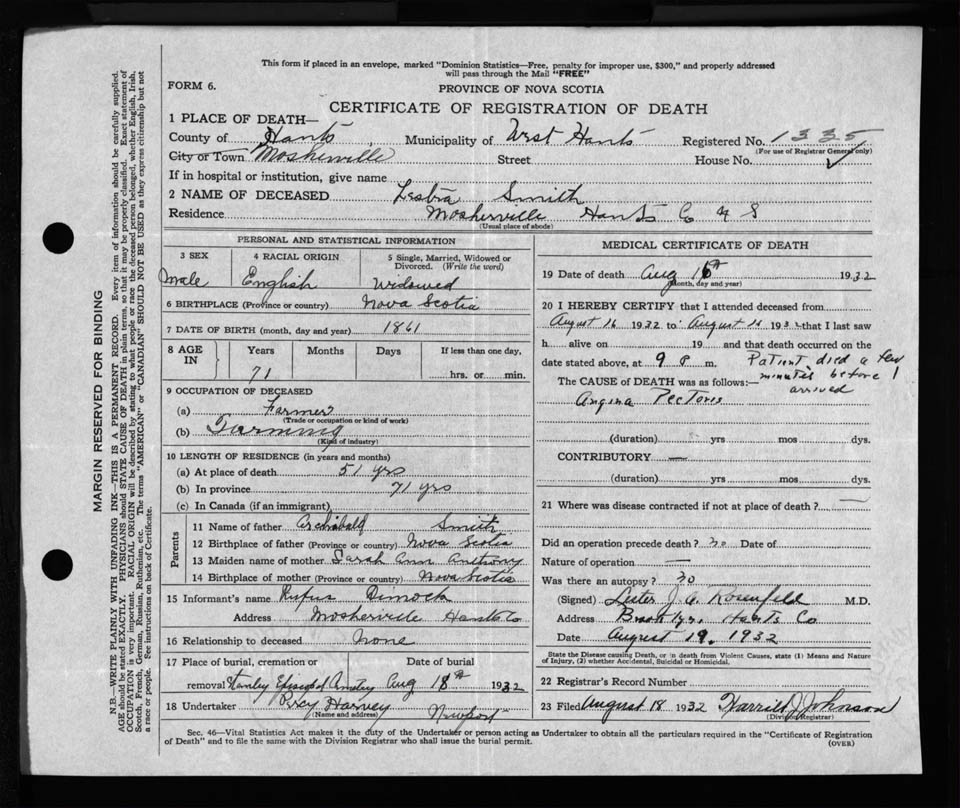 This form if placed in an envelope, marked "Dominion Statistics—Free, penalty for improper use, $300," and properly addressed
will pass through the Mail "FREE"
FORM 6.
PROVINCE OF NOVA SCOTIA
CERTIFICATE OF REGISTRATION OF DEATH
1 PLACE OF DEATH—
County of Hants Municipality of West Hants Registered No. 1335
(For use of Registrar General only)
City or Town Mosherville Street House No.
If in hospital or institution, give name
2 NAME OF DECEASED Smith
Residence Mosherville Hants Co N S
(Usual place of abode)
PERSONAL AND STATISTICAL INFORMATION
3 SEX 4 RACIAL ORIGIN 5 Single, Married, Widowed or Divorced. (Write the word)
Male English Widowed
6 BIRTHPLACE (Province or country) Nova Scotia
7 DATE OF BIRTH (month, day and year) 1861
8 AGE Years Months Days If less than one day,
71 hrs. or min.
9 OCCUPATION OF DECEASED
(a) Farmer
(Trade or occupation or kind of work)
(b) Farming
(Kind of industry)
10 LENGTH OF RESIDENCE (in years and months)
(a) At place of death 51 yrs
(b) In province 71 yrs
(c) In Canada (if an immigrant)
Parents
11 Name of father Archibald Smith
12 Birthplace of father (Province or country) Nova Scotia
13 Maiden name of mother Sarah Ann Anthony
14 Birthplace of mother (Province or country) Nova Scotia
15 Informant's name Rufus Dimock
Address Mosherville Hants Co
16 Relationship to deceased None
17 Place of burial, cremation or Date of burial
removal Stanley Episcopal Cemetery Aug 18th 1932
18 Undertaker Percy Harvey Newport
(Name and address)
MEDICAL CERTIFICATE OF DEATH
19 Date of death Aug 16th 1932
(Month, day and year)
20 I HEREBY CERTIFY that I attended deceased from
August 16 1932 to August 1932 that I last saw
h alive on 19 and that death occurred on the
date stated above, at 9 P m. Patient died a few
minutes before I
arrived
The CAUSE OF DEATH was as follows:—
Angina Pectoris
(duration) yrs mos dys.
CONTRIBUTORY —
(duration) yrs mos dys.
21 Where was disease contracted if not at place of death? —
Did an operation precede death? no Date of
Nature of operation —
Was there an autopsy? no
(Signed) Lester J. A. Rosenfeld M.D.
Address Brooklyn, Hants Co
Date August 19. 1932
State the Disease causing Death, or in death from Violent Causes, state (1) Means and Nature
of Injury, (2) whether Accidental, Suicidal or Homicidal.
22 Registrar's Record Number
23 Filed August 18 1932 Harrild J Johnson
(Division Registrar)
Sec. 46—Vital Statistics Act makes it the duty of the Undertaker or person acting as Undertaker to obtain all the particulars required in the "Certificate of Registration
of Death" and to file the same with the Division Registrar who shall issue the burial permit.
(OVER)
MARGIN RESERVED FOR BINDING
N.B.—WRITE PLAINLY WITH UNFADING INK—THIS IS A PERMANENT RECORD. Every item of information should be carefully supplied.
AGE should be stated EXACTLY. PHYSICIANS should STATE CAUSE OF DEATH in plain terms, so that it may be properly classified. Exact statement of
OCCUPATION is very important. RACIAL ORIGIN will be described by stating to what people or race the deceased person belonged, whether English, Irish,
Scotch, French, German, Russian, Ruthenian, etc. The terms "AMERICAN" or "CANADIAN" SHOULD NOT BE USED as they express citizenship but not
a race or people. See instructions on back of Certificate.